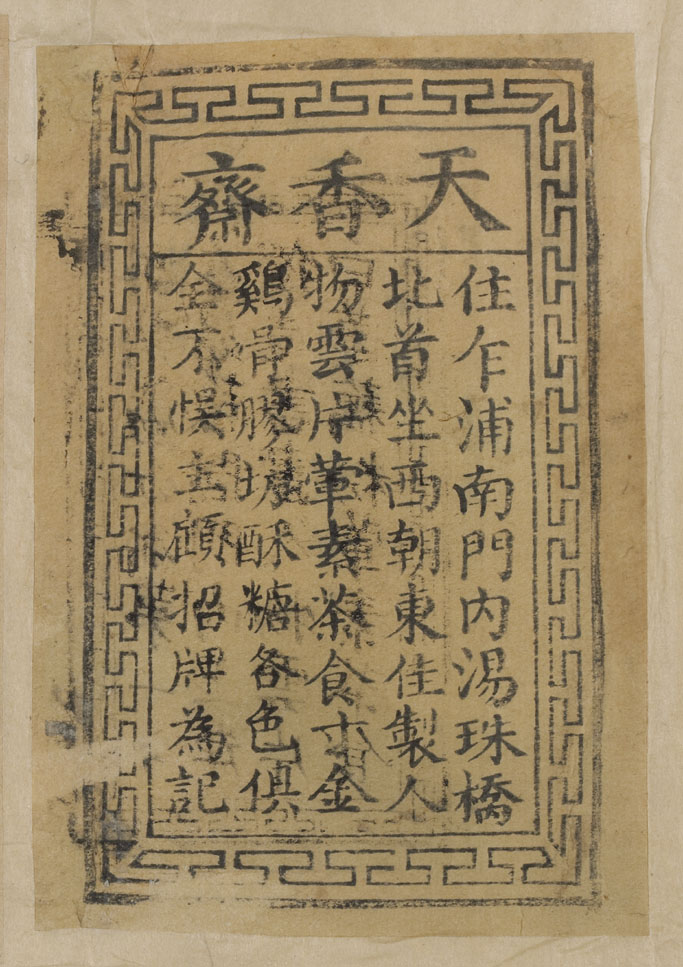 天香齋
住乍浦南門内湯珠橋
北首坐西朝東佳製人
物雲片葷素茶食金
鷄骨膠酥糖各色俱
全不悞主顧招牌為記